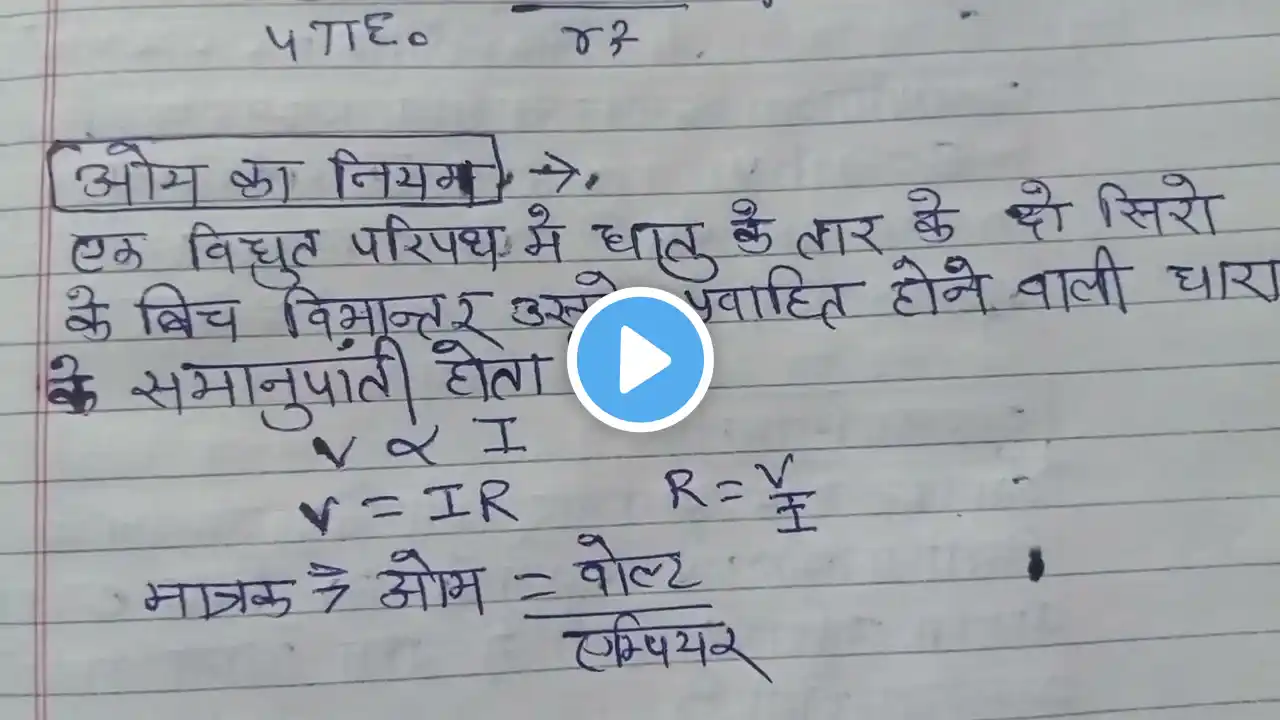 4πε० r२
ओम का नियम →
एक विधुत परिपथ मे धातु के तार के दो सिरो
के बिच विभान्तर प्रवाहित होने वाली धारा
के समानुपाती होता
V ∝ I
V = IR R = V/I
मात्रक ⇒ ओम = वोल्ट
एम्पियर